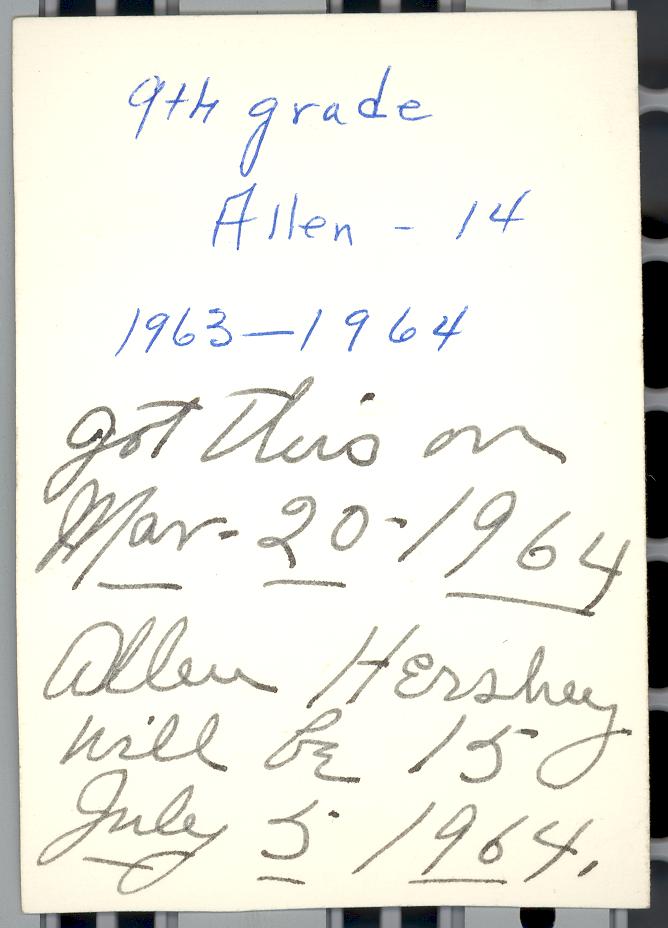 9th grade
Allen - 14
1963-1964
got this on
Mar- 20-1964
Allen Hershey
will be 15
July 5 1964.